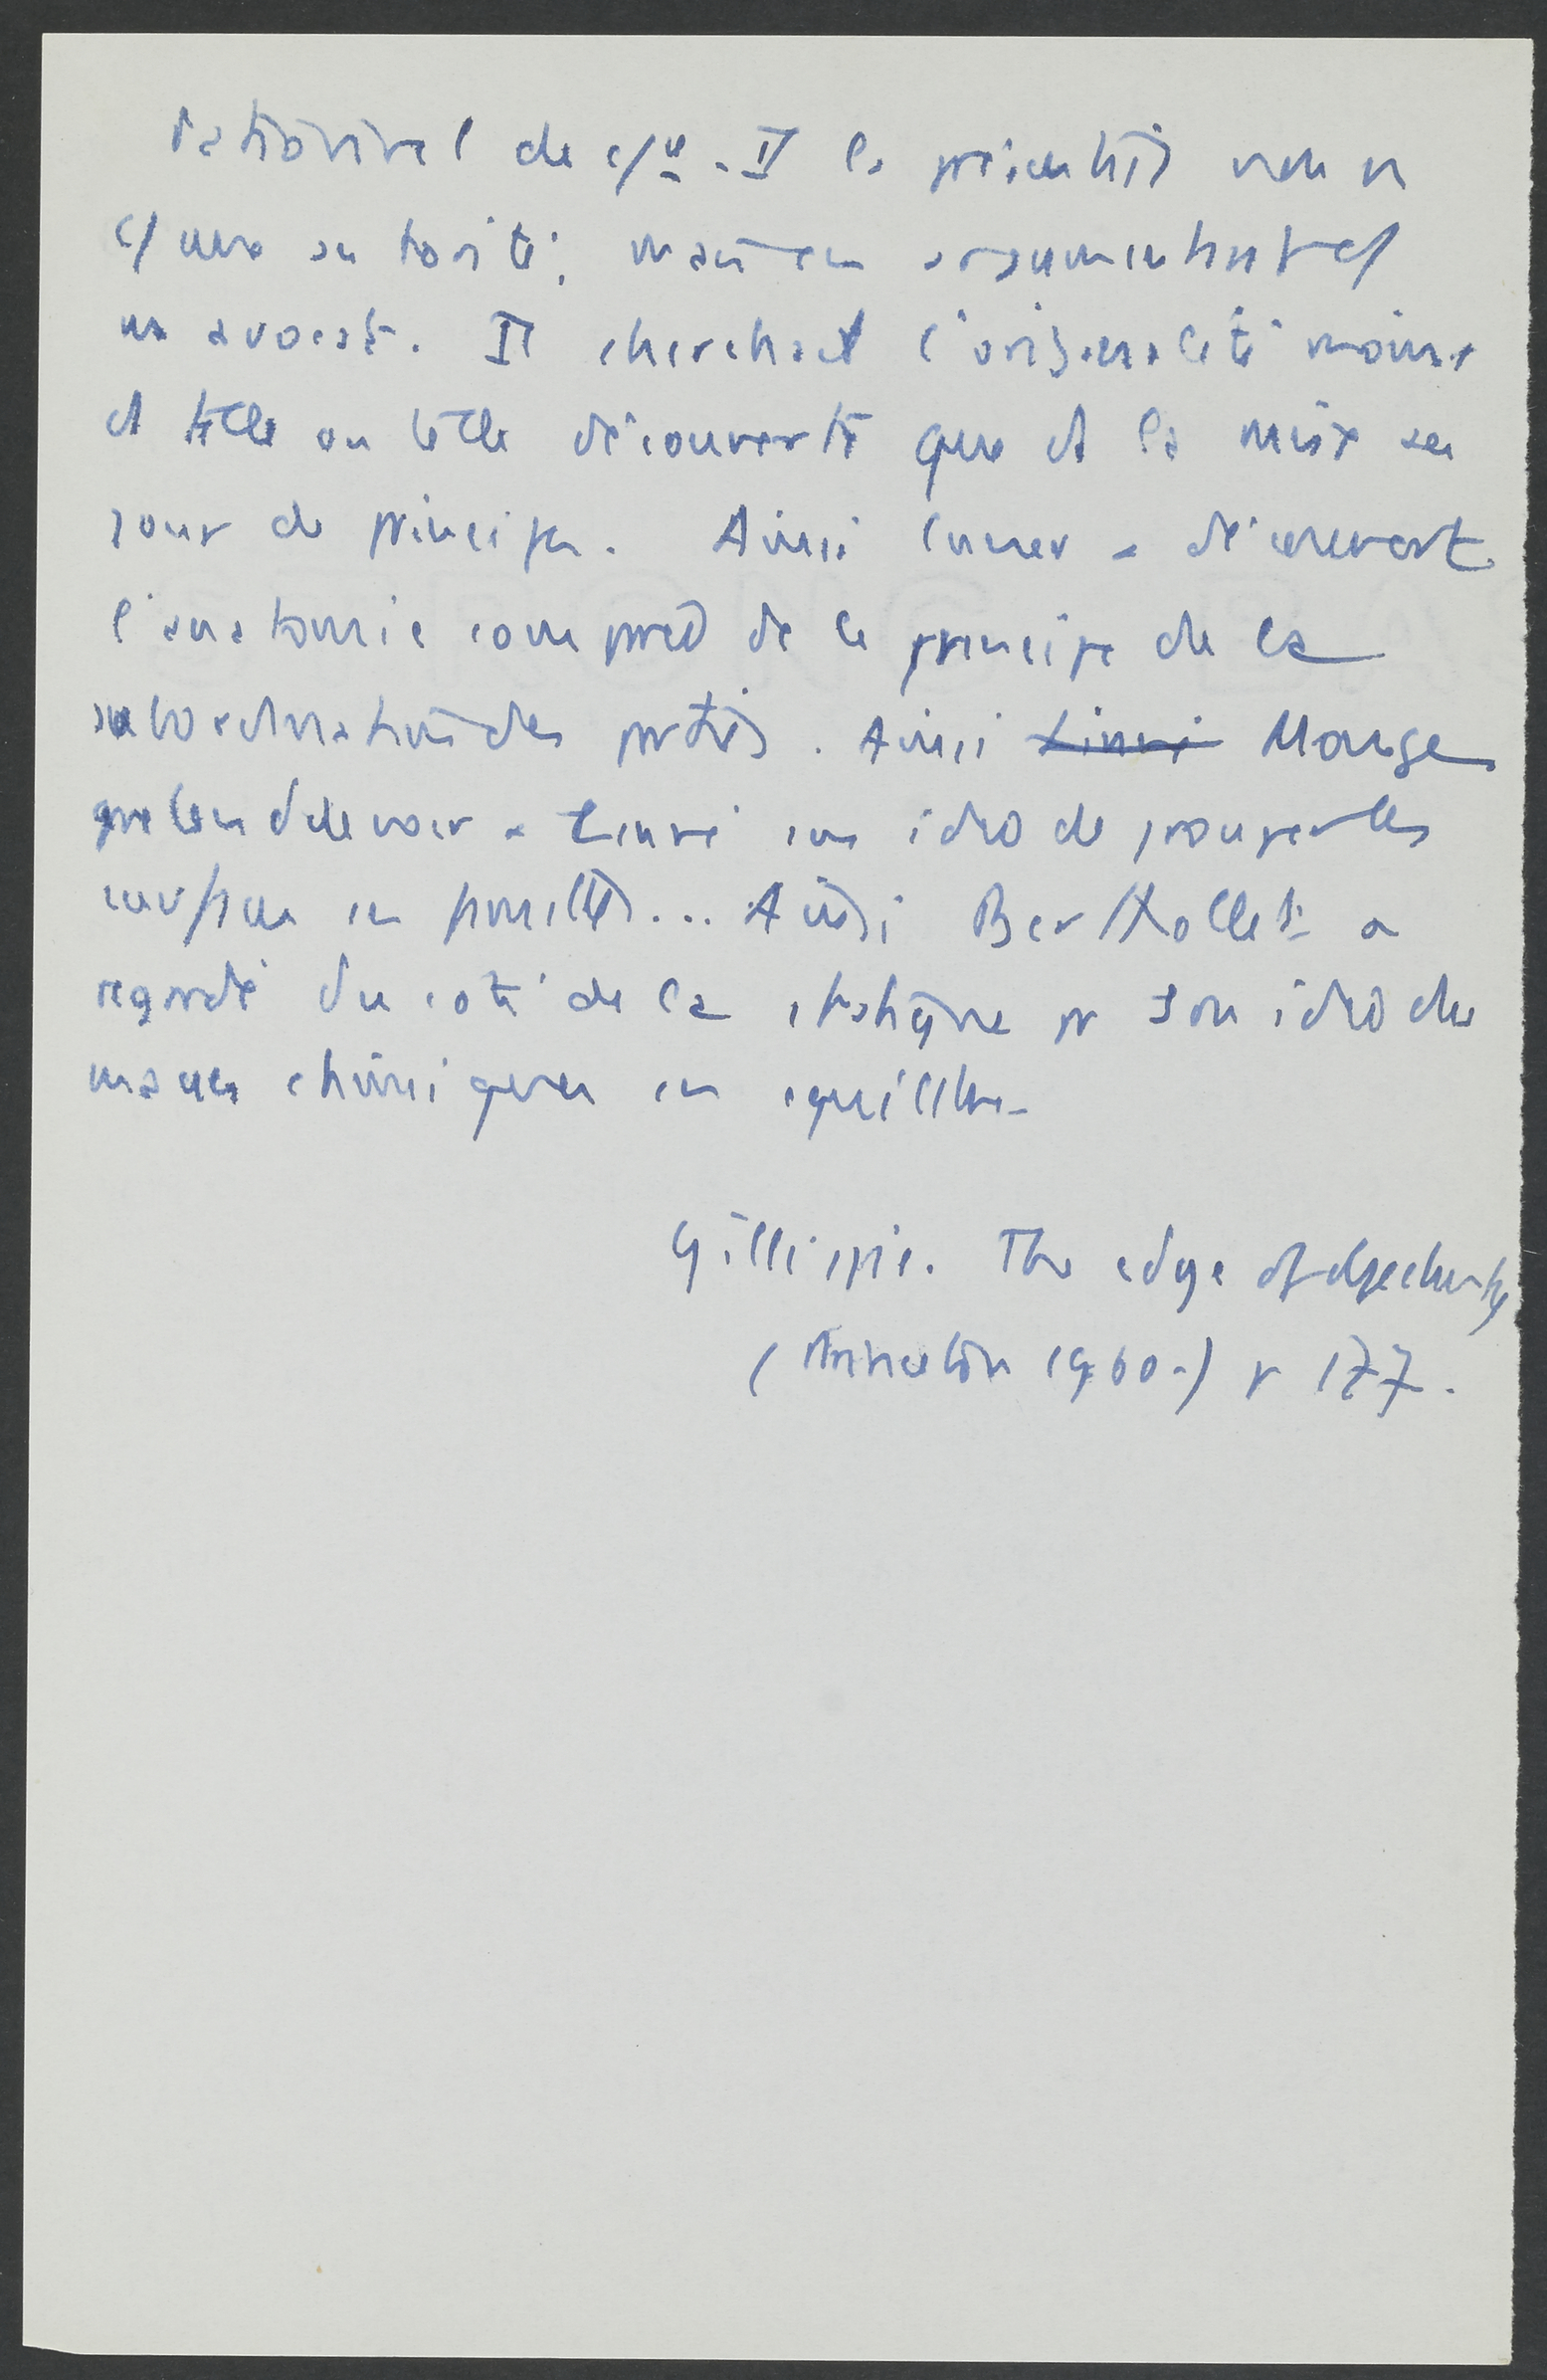 rationnel de c/u. Il la présentait non en
c/ une autorité; mais en argumentant c/
un avocat. Il cherchait l'originalité moins
ds telle ou telle découverte que ds la mise au
jour de principes. Ainsi Cuvier a découvert
l'anatomie comparée ds le principe de la
subordination des parties. Ainsi Linné Monge
prétend devoir à Linné son idée de grouper les
surfaces en familles... Ainsi Berthollet a
regardé du côté de la statique pr son idée des
masses chimiques en équilibre.
Gillispie. The edge of objectivity
(Princeton 1960.) p 177.